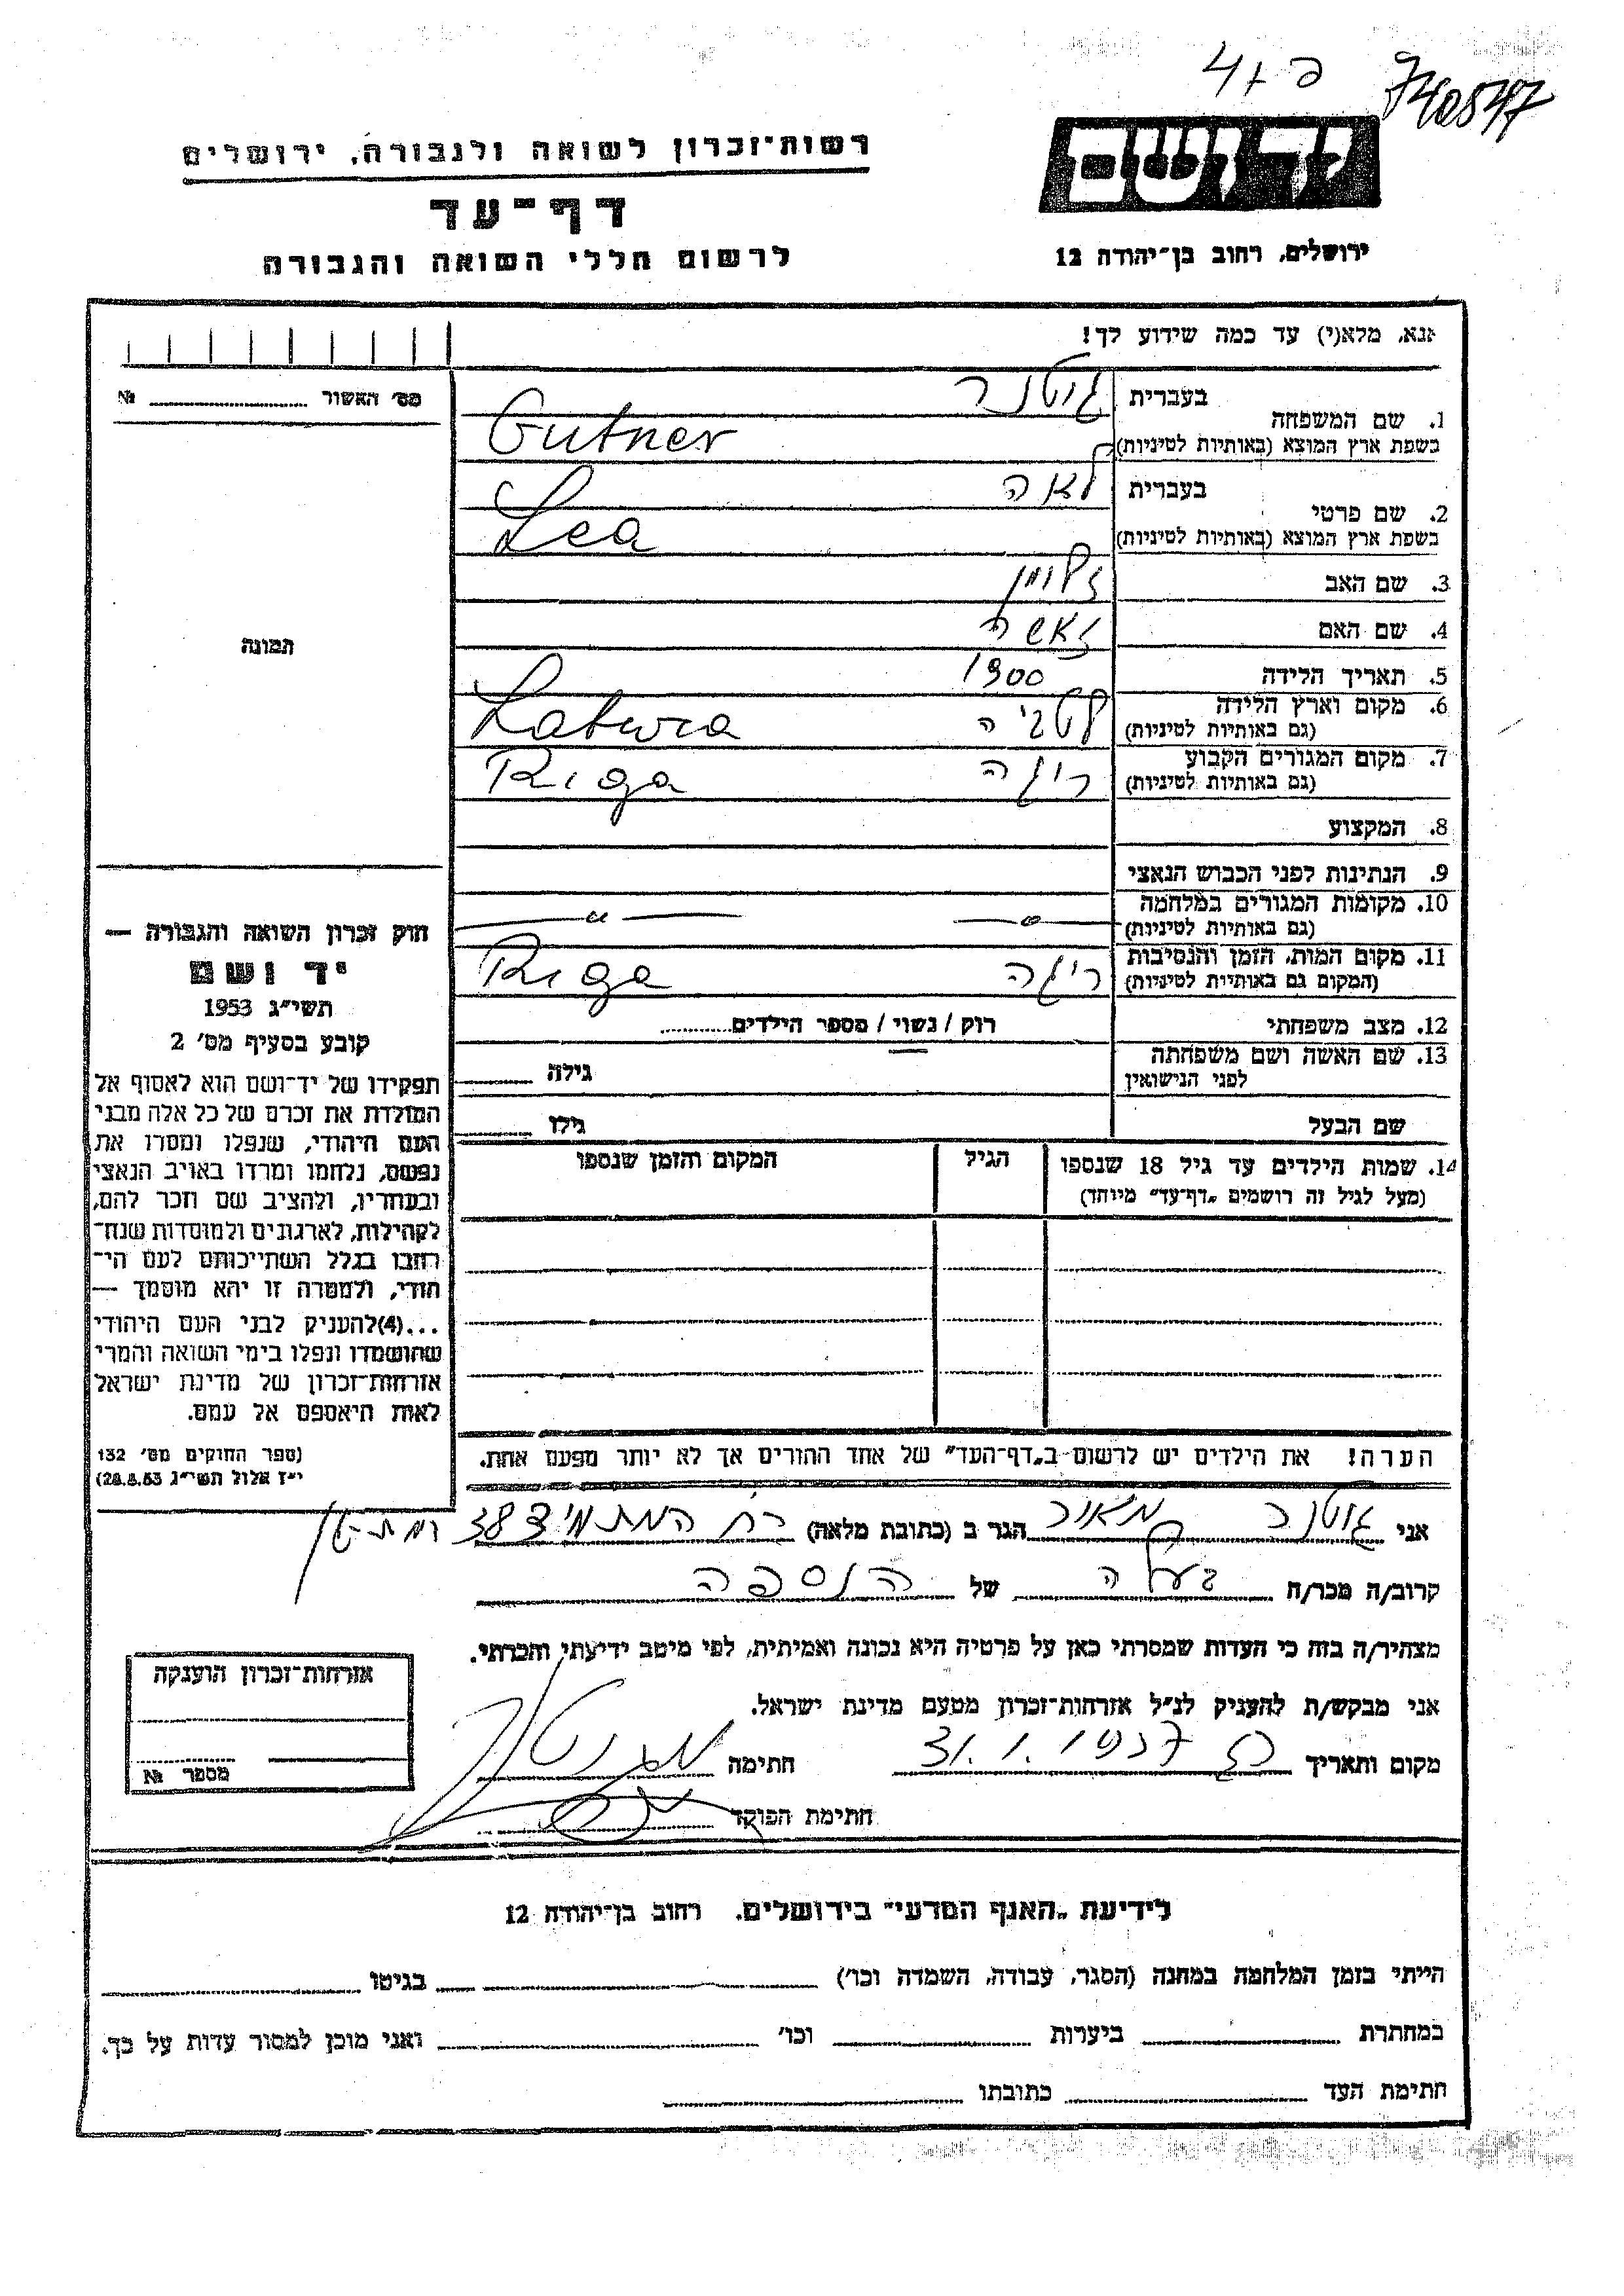 740547
יד ושם
רשות־זכרון לשואה ולגבורה, ירושלים
דף־עד
לרשום חללי השואה והגבורה
ירושלים, רחוב בן־יהודה 12
אנא, מלא(י) עד כמה שידוע לך!
מס׳ האשור № 
1. שם המשפחה בעברית גוטנר
בשפת ארץ המוצא (באותיות לטיניות) Gutner
2. שם פרטי בעברית לאה
בשפת ארץ המוצא (באותיות לטיניות) Lea
3. שם האב זלמן
4. שם האם
5. תאריך הלידה 1900
6. מקום וארץ הלידה (גם באותיות לטיניות) לטביה Latwia
7. מקום המגורים הקבוע (גם באותיות לטיניות) ריגה Riga
8. המקצוע
9. הנתינות לפני הכבוש הנאצי
10. מקומות המגורים במלחמה (גם באותיות לטיניות) — " — — " —
11. מקום המות, הזמן והנסיבות (המקום גם באותיות לטיניות) ריגה Riga
12. מצב משפחתי רוק / נשוי / מספר הילדים
13. שם האשה ושם משפחתה לפני הנישואין גילה
שם הבעל גילו
14. שמות הילדים עד גיל 18 שנספו הגיל המקום והזמן שנספו
(מעל לגיל זה רושמים „דף־עד״ מיוחד)
הערה! את הילדים יש לרשום ב„דף־העד״ של אחד ההורים אך לא יותר מפעם אחת.
תמונה
חוק זכרון השואה והגבורה —
יד ושם
תשי״ג 1953
קובע בסעיף מס׳ 2
תפקידו של יד־ושם הוא לאסוף אל
המולדת את זכרם של כל אלה מבני
העם היהודי, שנפלו ומסרו את
נפשם, נלחמו ומרדו באויב הנאצי
ובעוזריו, ולהציב שם וזכר להם,
לקהילות, לארגונים ולמוסדות שנח־
רבו בגלל השתייכותם לעם הי־
הודי, ולמטרה זו יהא מוסמך —
...(4) להעניק לבני העם היהודי
שהושמדו ונפלו בימי השואה והמרי
אזרחות־זכרון של מדינת ישראל
לאות היאספם אל עמם.
(ספר החוקים מס׳ 132
י״ז אלול תשי״ג 28.8.53)
אני גוטנר מאיר הגר ב (כתובת מלאה) רח המתמיד 38 רמת־גן
קרוב/ה מכר/ה בעלה של הנספה
מצהיר/ה בזה כי העדות שמסרתי כאן על פרטיה היא נכונה ואמיתית, לפי מיטב ידיעתי והכרתי.
אני מבקש/ת להעניק לנ״ל אזרחות־זכרון מטעם מדינת ישראל.
מקום ותאריך רג 31.1.1957 חתימה
חתימת הפוקד
אזרחות־זכרון הוענקה
מספר №
לידיעת „האגף המדעי״ בירושלים, רחוב בן־יהודה 12
הייתי בזמן המלחמה במחנה (הסגר, עבודה, השמדה וכו׳) בגיטו
במחתרת ביערות וכו׳ ואני מוכן למסור עדות על כך.
חתימת העד כתובתו